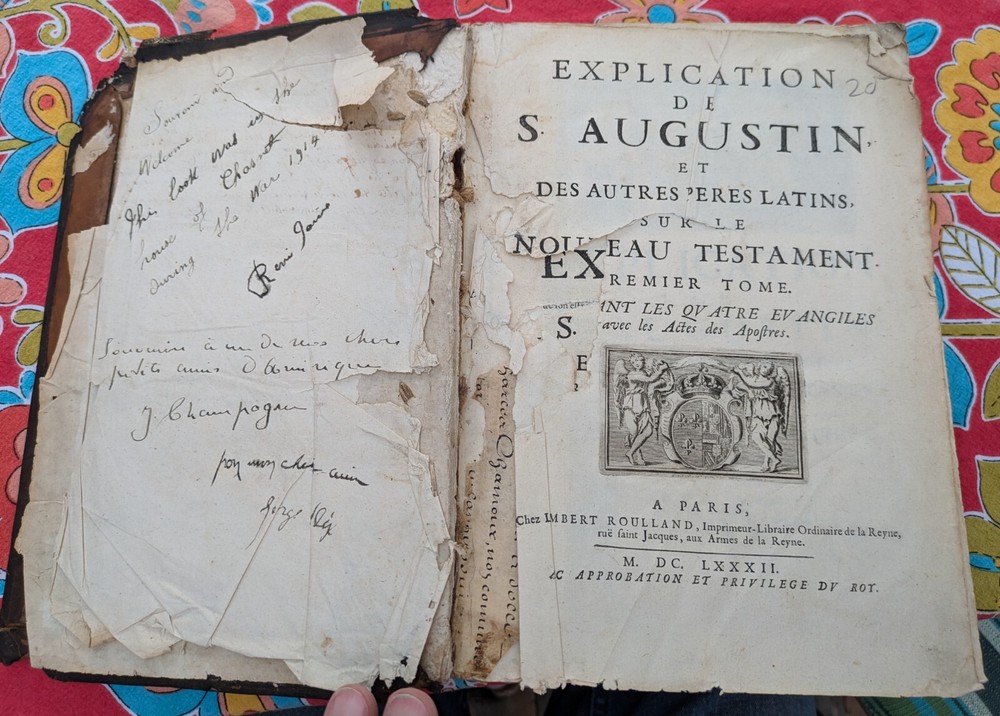 Welcome
this book was in the
house of Chasnot
during the War 1914
Souvenir à un de mes chers
petits amis d'Amérique
J Champagne
pour mon cher ami
Serge
20
EXPLICATION
DE
S AUGUSTIN,
ET
DES AUTRES PERES LATINS,
SUR LE
NOUVEAU TESTAMENT.
EX
REMIER TOME.
ANT LES QVATRE EVANGILES
S.
avec les Actes des Apostres.
E
A PARIS,
Chez IMBERT ROULLAND, Imprimeur-Libraire Ordinaire de la Reyne,
ruë saint Jacques, aux Armes de la Reyne.
M. DC. LXXXII.
C APPROBATION ET PRIVILEGE DV ROY.